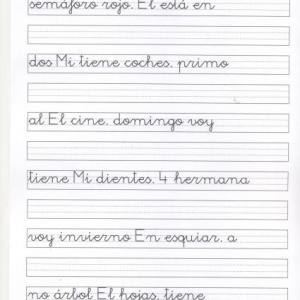 semáforo rojo. El está en
dos Mi tiene coches. primo
al El cine. domingo voy
tiene Mi dientes. 4 hermana
voy invierno En esquiar. a
no árbol El hojas. tiene